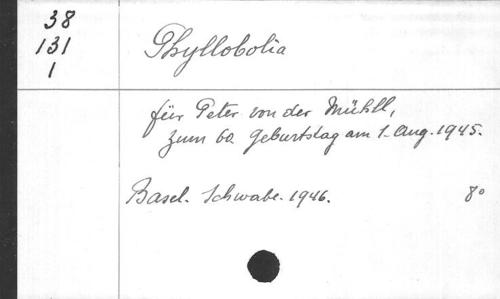 38
131
1
Phyllobolia
für Peter von der Mühll,
zum 60. Geburtstag am 1. Aug. 1945.
Basel. Schwabe. 1946. 8°